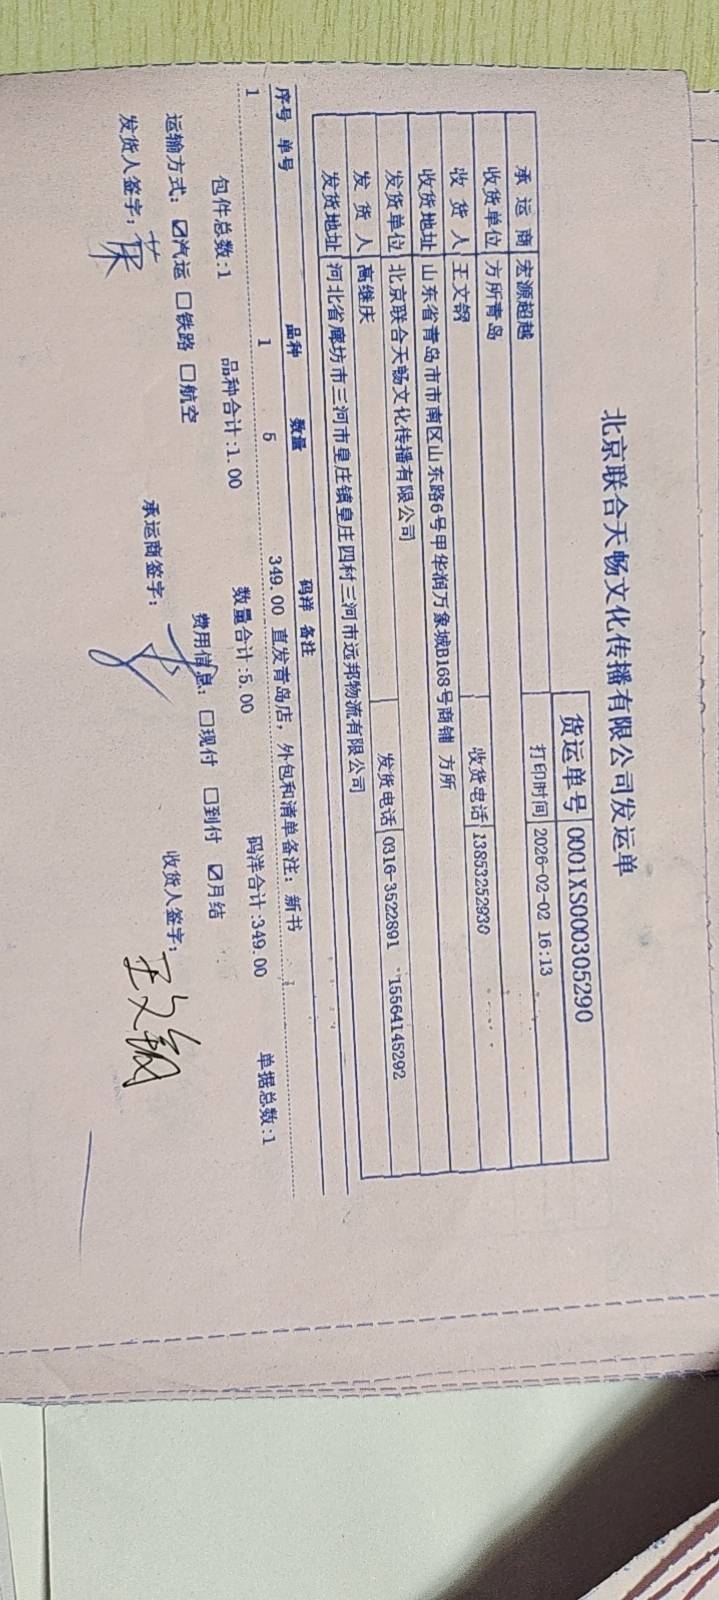 北京联合天畅文化传播有限公司发运单
货运单号 0001XS000305290
打印时间 2026-02-02 16:13
承运商 宏源超越
收货单位 方所青岛
收货人 王文钢 收货电话 13853252930
收货地址 山东省青岛市市南区山东路6号甲华润万象城B168号商铺 方所
发货单位 北京联合天畅文化传播有限公司
发货人 高继庆 发货电话 0316-3522891 15564145292
发货地址 河北省廊坊市三河市皇庄镇皇庄四村三河市远邦物流有限公司
序号 单号 品种 数量 码洋 备注
1 1 5 349.00 直发青岛店，外包和清单备注：新书
包件总数:1 品种合计:1.00 数量合计:5.00 码洋合计:349.00 单据总数:1
运输方式：☑汽运 □铁路 □航空 费用信息：□现付 □到付 ☑月结
发货人签字： 承运商签字： 收货人签字：王文钢